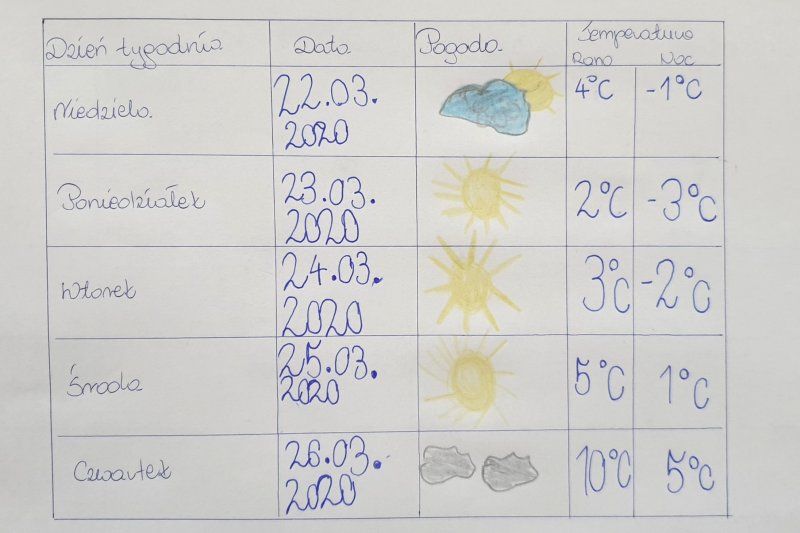 Dzień tygodnia Data Pogoda Temperatura
Rano Noc
Niedziela 22.03. 4°C -1°C
2020
Poniedziałek 23.03. 2°C -3°C
2020
Wtorek 24.03. 3°C -2°C
2020
Środa 25.03. 5°C 1°C
2020
Czwartek 26.03. 10°C 5°C
2020